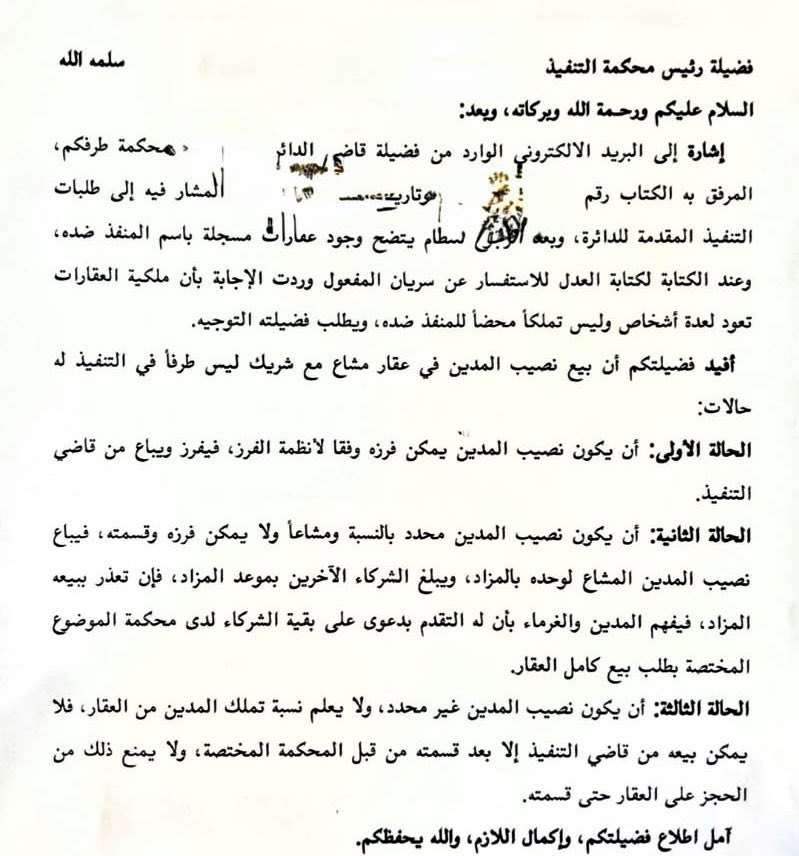 فضيلة رئيس محكمة التنفيذ سلمه الله
السلام عليكم ورحمة الله وبركاته، وبعد:
إشارة إلى البريد الالكتروني الوارد من فضيلة قاضي محكمة طرفكم،
المرفق به الكتاب رقم وتاريخ المشار فيه إلى طلبات
التنفيذ المقدمة للدائرة، وبعد لسطام يتضح وجود عقارات مسجلة باسم المنفذ ضده،
وعند الكتابة لكتابة العدل للاستفسار عن سريان المفعول وردت الإجابة بأن ملكية العقارات
تعود لعدة أشخاص وليس تملكاً محضاً للمنفذ ضده، ويطلب فضيلته التوجيه.
أفيد فضيلتكم أن بيع نصيب المدين في عقار مشاع مع شريك ليس طرفاً في التنفيذ له
حالات:
الحالة الأولى: أن يكون نصيب المدين يمكن فرزه وفقا لأنظمة الفرز، فيفرز ويباع من قاضي
التنفيذ.
الحالة الثانية: أن يكون نصيب المدين محدد بالنسبة ومشاعاً ولا يمكن فرزه وقسمته، فيباع
نصيب المدين المشاع لوحده بالمزاد، ويبلغ الشركاء الآخرين بموعد المزاد، فإن تعذر ببيعه
المزاد، فيفهم المدين والغرماء بأن له التقدم بدعوى على بقية الشركاء لدى محكمة الموضوع
المختصة بطلب بيع كامل العقار.
الحالة الثالثة: أن يكون نصيب المدين غير محدد، ولا يعلم نسبة تملك المدين من العقار، فلا
يمكن بيعه من قاضي التنفيذ إلا بعد قسمته من قبل المحكمة المختصة، ولا يمنع ذلك من
الحجز على العقار حتى قسمته.
آمل اطلاع فضيلتكم، وإكمال اللازم، والله يحفظكم.